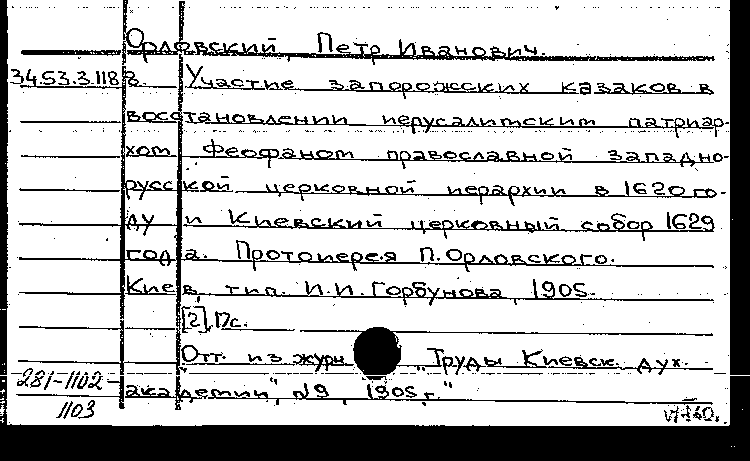 Орловский, Петр Иванович.
34.53.3.118 в. Участие запорожских казаков в
восстановлении иерусалимским патриар-
хом Феофаном православной западно-
русской церковной иерархии в 1620 го-
ду и Киевский церковный собор 1629
года. Протоиерея П. Орловского.
Киев, тип. И.И. Горбунова, 1905.
[2], 17с.
Отт. из журн. „Труды Киевск. дух.
281-1102- академии", №9, 1905 г."
1103